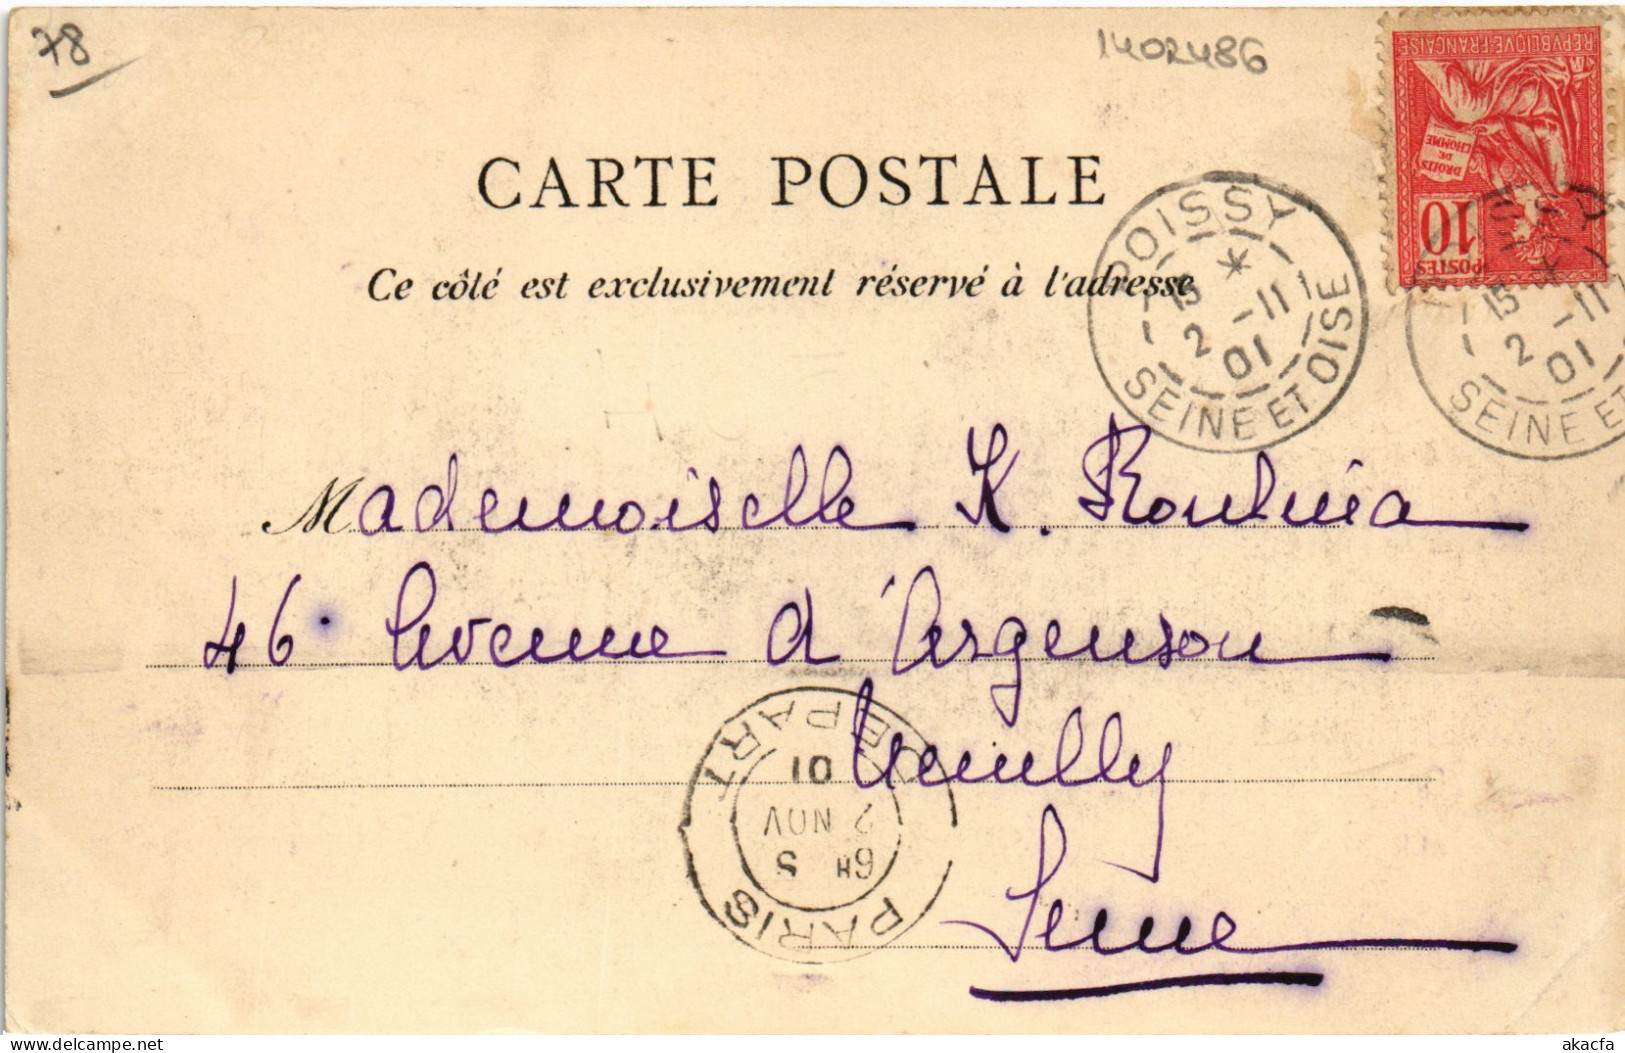 78
1402486
REPUBLIQUE FRANÇAISE
DROITS
DE
L'HOMME
10
POSTES
CARTE POSTALE
Ce côté est exclusivement réservé à l'adresse
POISSY
15
2 -11
01
SEINE ET OISE
15
2 -11
01
SEINE ET
Mademoiselle K.
46. Avenue d'Argenson
Neuilly
Seine
PARIS DEPART
6H S
2 NOV
01
akacfa